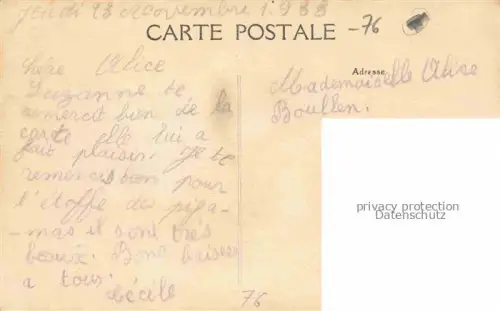 Jeudi 23 Novembre 1933
CARTE POSTALE
-76
Adresse
Chère Alice
Suzanne te
remercit bien de la
carte elle lui a
fait plaisir. Je te
remercis bien pour
l'étoffe des piga-
-mas il sont très
beaux. Bons baisers
a tous.
Cécile
76
Mademoiselle Alice
Boullen.
privacy protection
Datenschutz